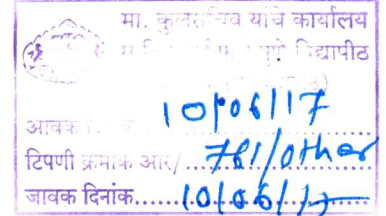 मा. कुलसचिव यांचे कार्यालय
पुणे विद्यापीठ
आवक 10/06/17
टिपणी क्रमांक आर/ 781/other
जावक दिनांक......10/06/17